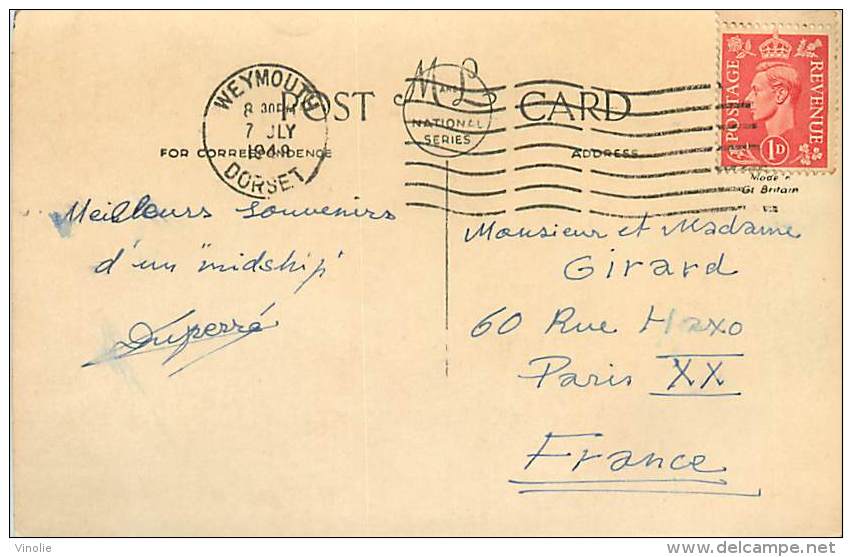 WEYMOUTH
8 30PM
7 JLY
1949
DORSET
POST CARD
M AND L
NATIONAL
SERIES
FOR CORRESPONDENCE
ADDRESS
POSTAGE
REVENUE
1D
Made in
Gt Britain
Meilleurs souvenirs
d'un "midship"
Duperré
Monsieur et Madame
Girard
60 Rue Haxo
Paris XX
France
Vinolie
http://www.delcampe.net